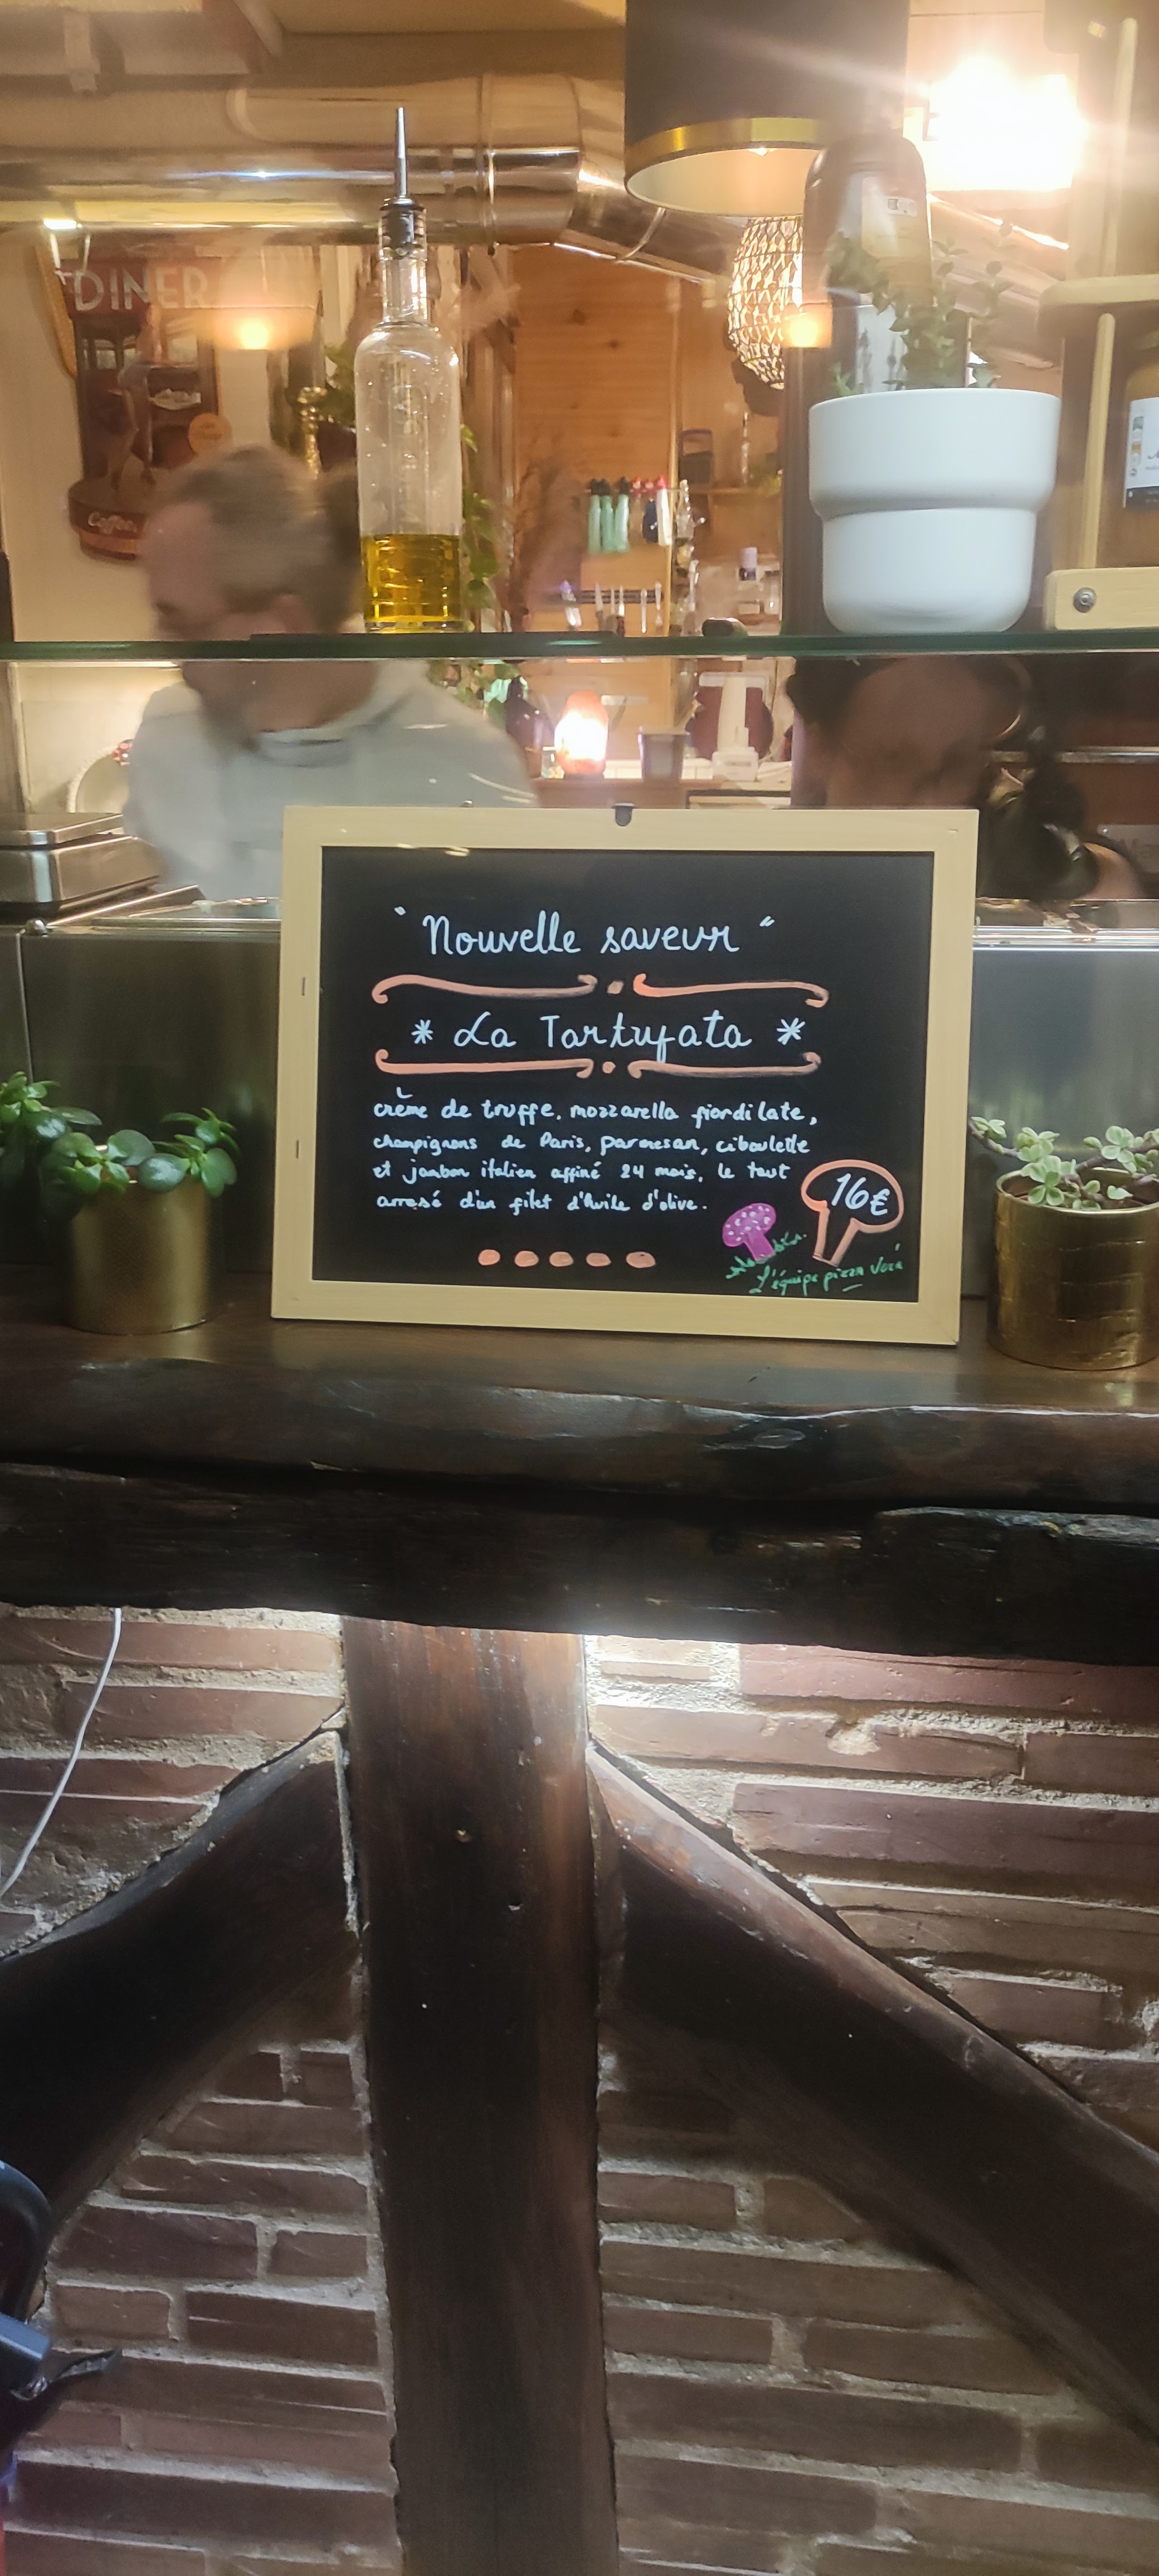 DINER
Coffee
" Nouvelle saveur "
* La Tartufata *
crème de truffe, mozzarella fiordi late,
champignons de Paris, parmesan, ciboulette
et jambon italien affiné 24 mois, le tout
arrosé d'un filet d'huile d'olive.
16€
L'équipe pizza